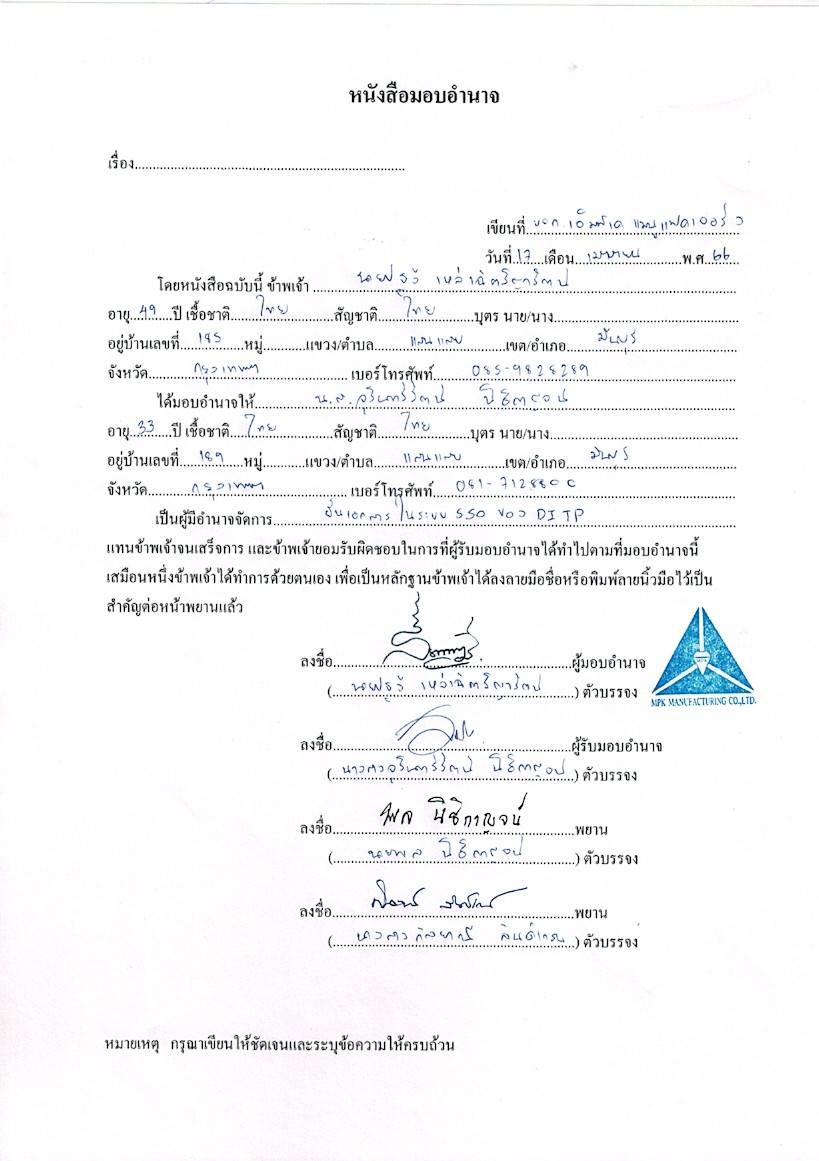 หนังสือมอบอำนาจ
เรื่อง....................................................................
เขียนที่ บจก. เอ็มพีเค แมนูแฟคเจอร์ริ่ง
วันที่ 17 เดือน เมษายน พ.ศ. 66
โดยหนังสือฉบับนี้ ข้าพเจ้า
อายุ 49 ปี เชื้อชาติ ไทย สัญชาติ ไทย บุตร นาย/นาง
อยู่บ้านเลขที่ 185 หมู่ แขวง/ตำบล แสนแสบ เขต/อำเภอ มีนบุรี
จังหวัด กรุงเทพฯ เบอร์โทรศัพท์ 085-9828289
ได้มอบอำนาจให้ น.ส. นิธิกาญจน์
อายุ 33 ปี เชื้อชาติ ไทย สัญชาติ ไทย บุตร นาย/นาง
อยู่บ้านเลขที่ 189 หมู่ แขวง/ตำบล แสนแสบ เขต/อำเภอ มีนบุรี
จังหวัด กรุงเทพฯ เบอร์โทรศัพท์ 081-7128800
เป็นผู้มีอำนาจจัดการ ยื่นเอกสาร ในระบบ SSO ของ DITP
แทนข้าพเจ้าจนเสร็จการ และข้าพเจ้ายอมรับผิดชอบในการที่ผู้รับมอบอำนาจได้ทำไปตามที่มอบอำนาจนี้
เสมือนหนึ่งข้าพเจ้าได้ทำการด้วยตนเอง เพื่อเป็นหลักฐานข้าพเจ้าได้ลงลายมือชื่อหรือพิมพ์ลายนิ้วมือไว้เป็น
สำคัญต่อหน้าพยานแล้ว
ลงชื่อ ผู้มอบอำนาจ
( ) ตัวบรรจง
MPK MANUFACTURING CO.,LTD.
ลงชื่อ ผู้รับมอบอำนาจ
(นางสาว นิธิกาญจน์) ตัวบรรจง
ลงชื่อ พล นิธิกาญจน์ พยาน
(นายพล นิธิกาญจน์) ตัวบรรจง
ลงชื่อ พยาน
(นางสาว ) ตัวบรรจง
หมายเหตุ กรุณาเขียนให้ชัดเจนและระบุข้อความให้ครบถ้วน